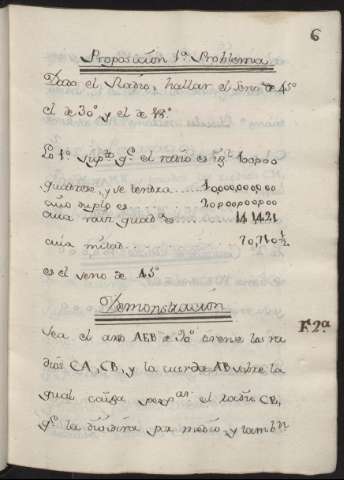 6
Proposicion 1ª Problema
Dado el Radio, hallar el Seno de 45º
el de 30º y el de 18º
Lo 1º sup.to q.e el radio es 100000
quadrese, y se tendra 10,000,000,000
cuio duplo es 20,000,000,000
cuia raiz quad es 141421
cuia mitad 70,710½
es el seno de 45º
Demonstracion
Sea el arco AEB de 90º tirense los ra
dios CA, CB, y la cuerda AB sobre la
qual caiga el radio CE,
q.e la dividira por medio, y tambn
F.ª 2.ª